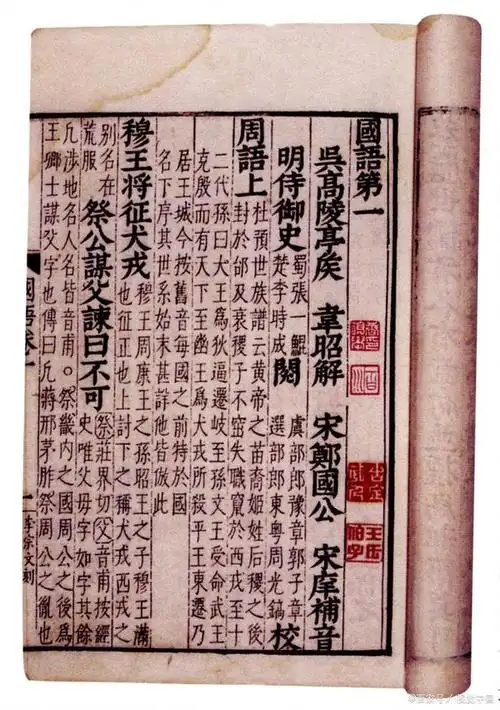 國語第一
吳高陵亭矦 韋昭解 宋鄭國公 宋庠補音
明侍御史 蜀張一鯤 楚李時成 閱 虞部郎豫章郭子章 選部郎東粵周光鎬 校
周語上 杜預世族譜云黄帝之苗裔姬姓后稷之後
封於邰及衰稷子不窋失職竄於西戎至十
二代孫曰大王為狄逼遷岐至孫文王受命武王
克殷而有天下至幽王爲犬戎所殺平王東遷乃
居王城今按舊音每國之前特於國
名下序其世系始末甚詳他皆倣此
穆王将征犬戎 穆王周康王之孫昭王之子穆王滿
也征正也上討下之稱犬戎西戎之
別名在
荒服 祭公謀父諫曰不可 祭莊界切父音甫按經
史唯父母字如字其餘
凢涉地名人名皆音甫。祭畿内之國周公之後爲
王卿士謀父字也傳曰凢蔣邢茅胙祭周公之胤也
國語卷一
一